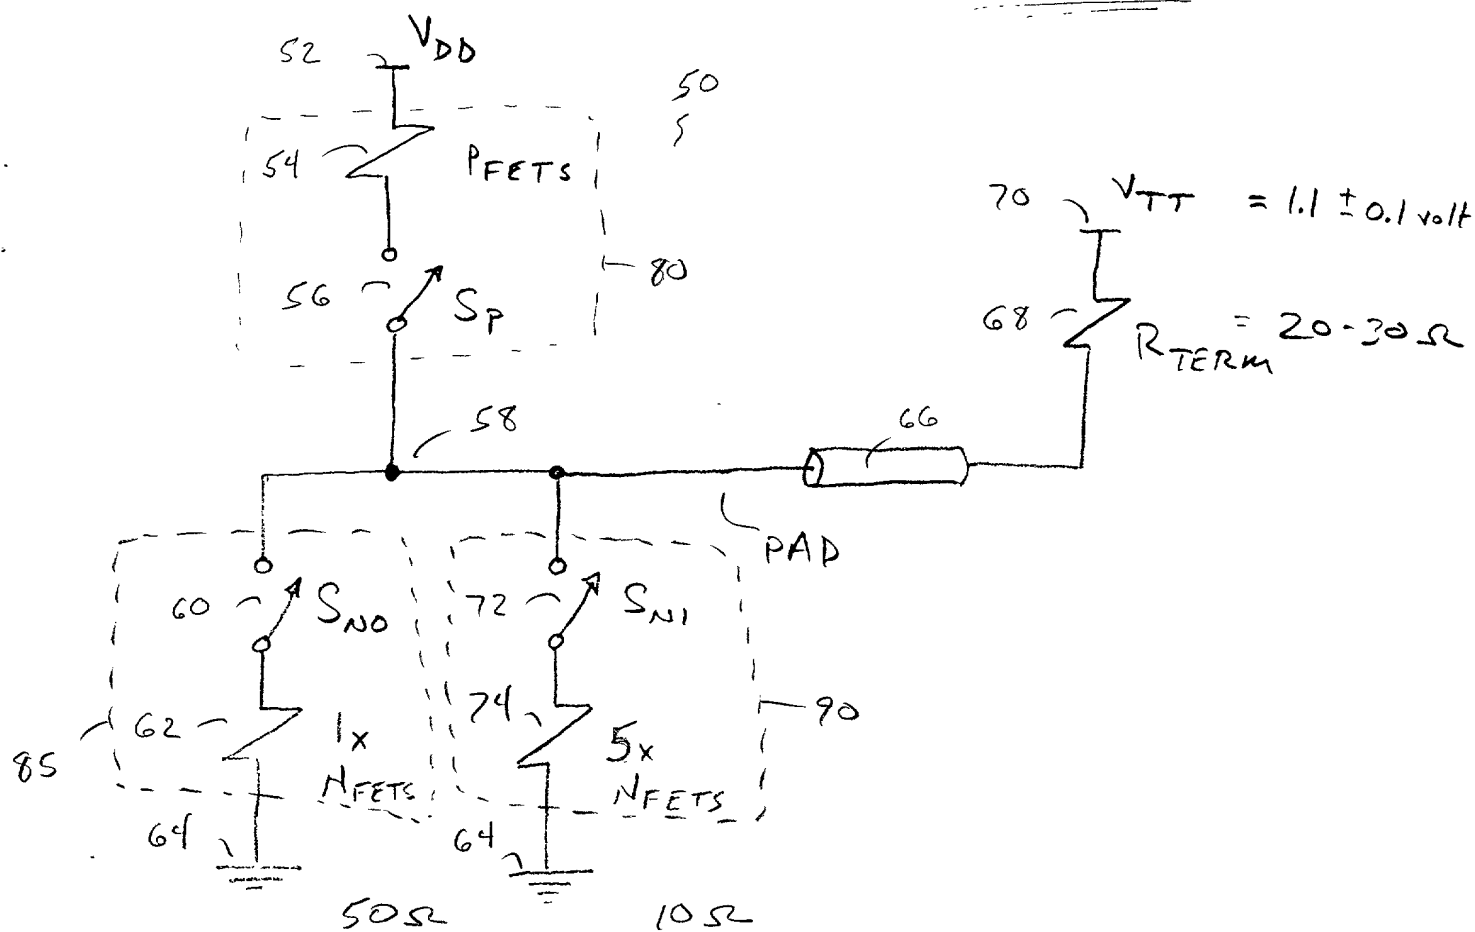 52 V_DD
50
54 PFETS
80
56 S_P
70 V_TT = 1.1 ± 0.1 volt
68 R_TERM = 20-30 Ω
58
66
PAD
60 S_N0
72 S_N1
62 1x NFETS
74 5x NFETS
90
85
64
64
50 Ω
10 Ω